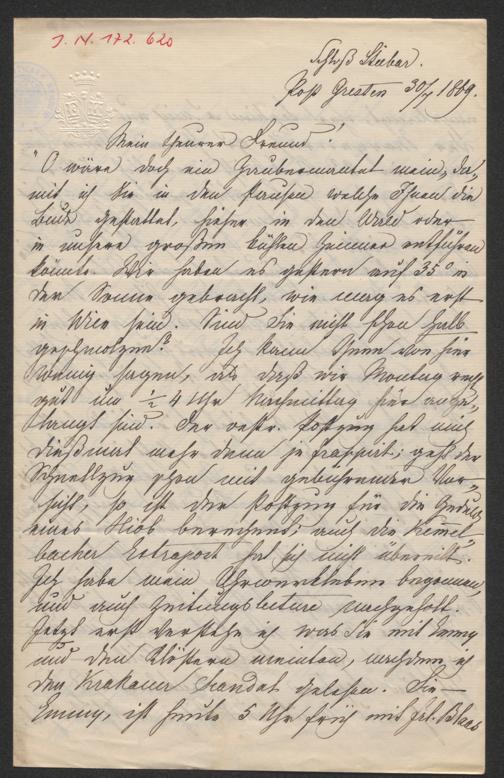 J. N. 172.620
Schloß Stiebar.
Post Gresten 30/7 1869.
Mein theurer Freund!
"O wäre doch ein Zaubermantel mein", da-
mit ich Sie in den Pausen welche Ihnen die
Bude gestattet, hieher in den Wald oder
in unsere großen kühlen Zimmer entführen
könnte. Wir haben es gestern auf 35° in
der Sonne gebracht, wie mag es erst
in Wien sein. Sind Sie nicht schon halb
geschmolzen? Ich kann Ihnen von hier
wenig sagen, als daß wir Montag recht
gut um ½ 4 Uhr Nachmittag hier ange-
langt sind. Der oestr. Postzug hat mich
dießmal mehr denn je frappirt; geht der
Schnellzug schon mit gebührender Vor-
sicht, so ist der Postzug für die Geduld
eines Hiob berechnet; auch die Kemel-
bacher Extrapost hat sich nicht übereilt.
Ich habe mein begonnen,
und auch Zeitungslecture nachgeholt.
Jetzt erst verstehe ich was Sie mit Emmy
und den Klöstern meinten, nachdem ich
den Krakauer Scandal gelesen. Die
Emmy, ist heute 5 Uhr früh mit Frl. Blaas